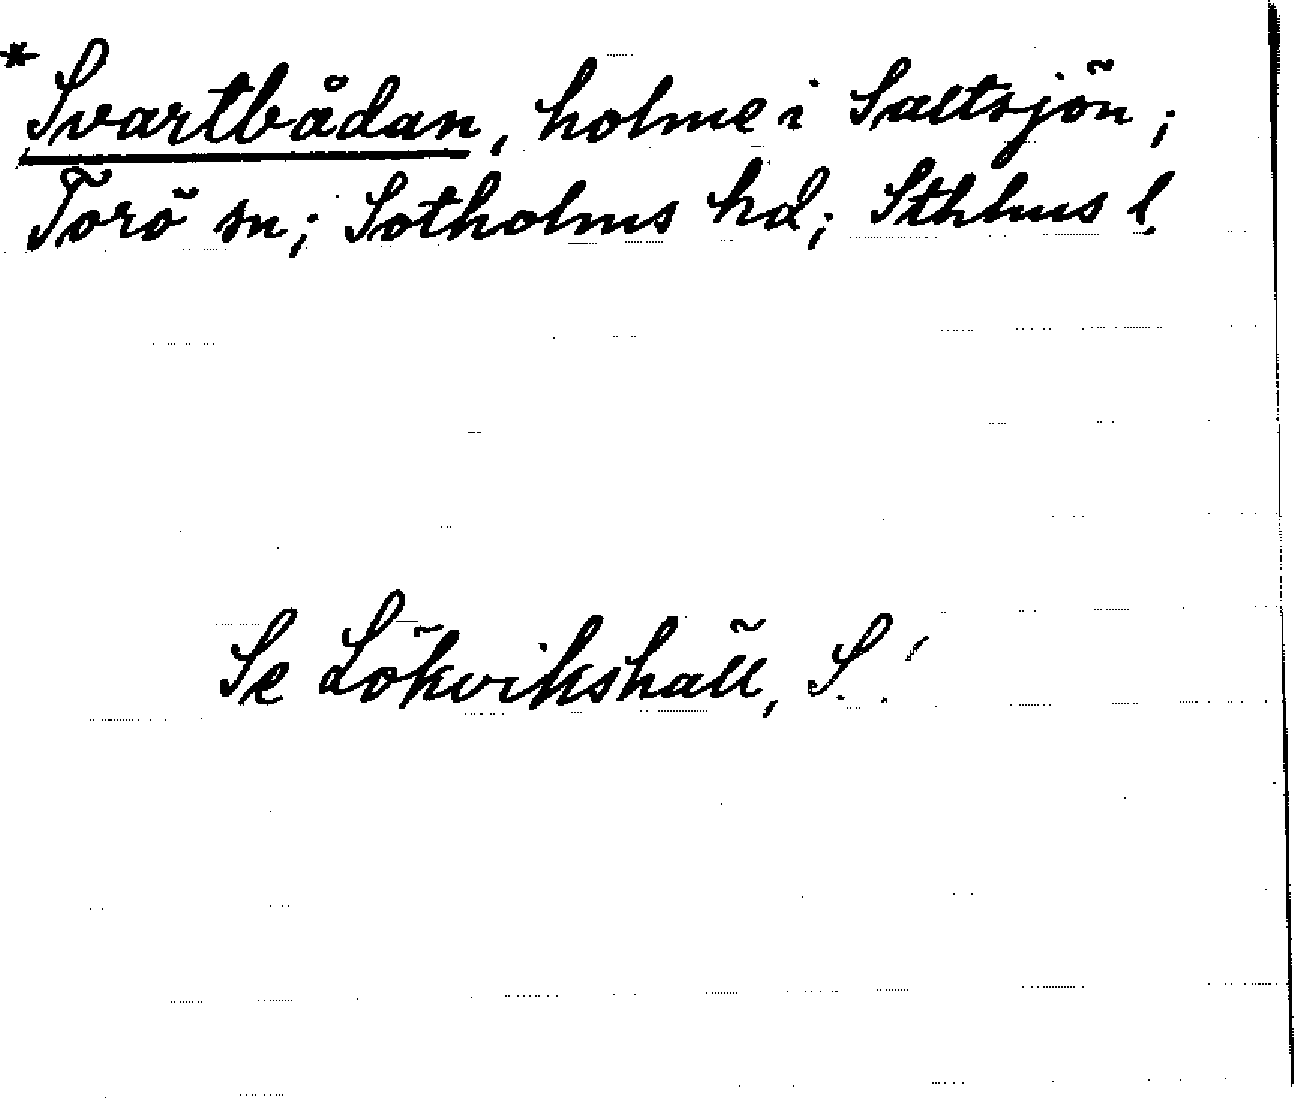 * Svartbådan, holme i Saltsjön;
Torö sn; Sotholms hd; Sthlms l.
Se Lökvikshäll, S.!